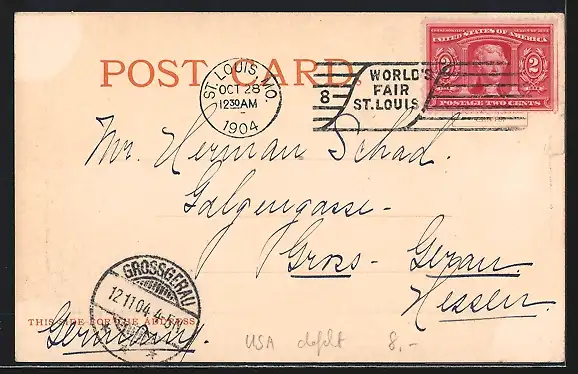 POST CARD.
ST. LOUIS, MO.
OCT 28
1230AM
1904
8
WORLD'S
FAIR
ST. LOUIS
UNITED STATES OF AMERICA
2 2
POSTAGE TWO CENTS
Mr. Herman Schad.
Galgengasse-
Gross-Gerau
Hessen.
GROSSGERAU
12 11 04
THIS SIDE FOR THE ADDRESS
Germany.
USA 8,-